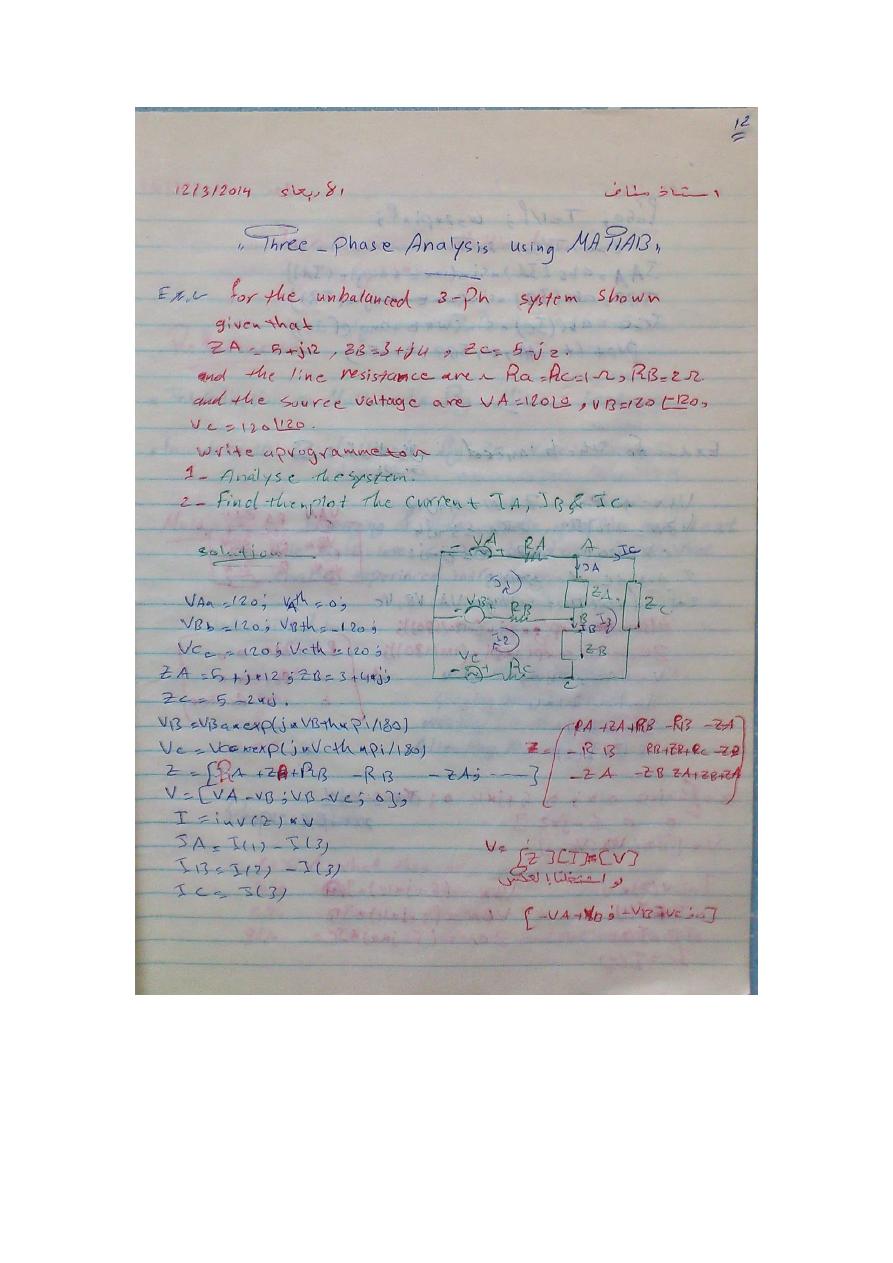 12
12/3/2014 الاربعاء استاذ مناف
"Three-phase Analysis using MATLAB"
Ex:~ for the unbalanced 3-Ph system shown
given that
ZA = 5+j12 , ZB=3+j4 , Zc= 5-j2.
and the line resistance are ~ Ra=Rc=1Ω, RB=2Ω
and the source voltage are VA=120∠0 , VB=120∠-120,
Vc = 120∠120.
write aprogramme to~
1- Analyse the system.
2- Find then plot the current IA, IB & Ic.
solution
VA
RA
A
Ic
IA
I1
ZA
Zc
VB
RB
B
IB
I3
I2
ZB
Vc
Rc
C
VAa =120; VAth=0;
VBb =120; VBth=-120;
VCc =120; Vcth=120;
ZA =5+j*12; ZB=3+4*j;
Zc= 5-2*j.
VB=VBa*exp(j*VBth*pi/180)
Vc=Vca*exp(j*Vcth*pi/180)
Z=[RA+ZA+RB -RB -ZA; ----]
V=[VA-VB; VB-Vc; 0];
I=inv(Z)*V
IA=I(1)-I(3)
IB=I(2)-I(3)
Ic=I(3)
Z= RA+ZA+RB -RB -ZA
-RB RB+ZB+Rc -ZB
-ZA -ZB ZA+ZB+ZA
V=
[Z][I]=[V]
[-VA+VB; -VB+Vc; 0]